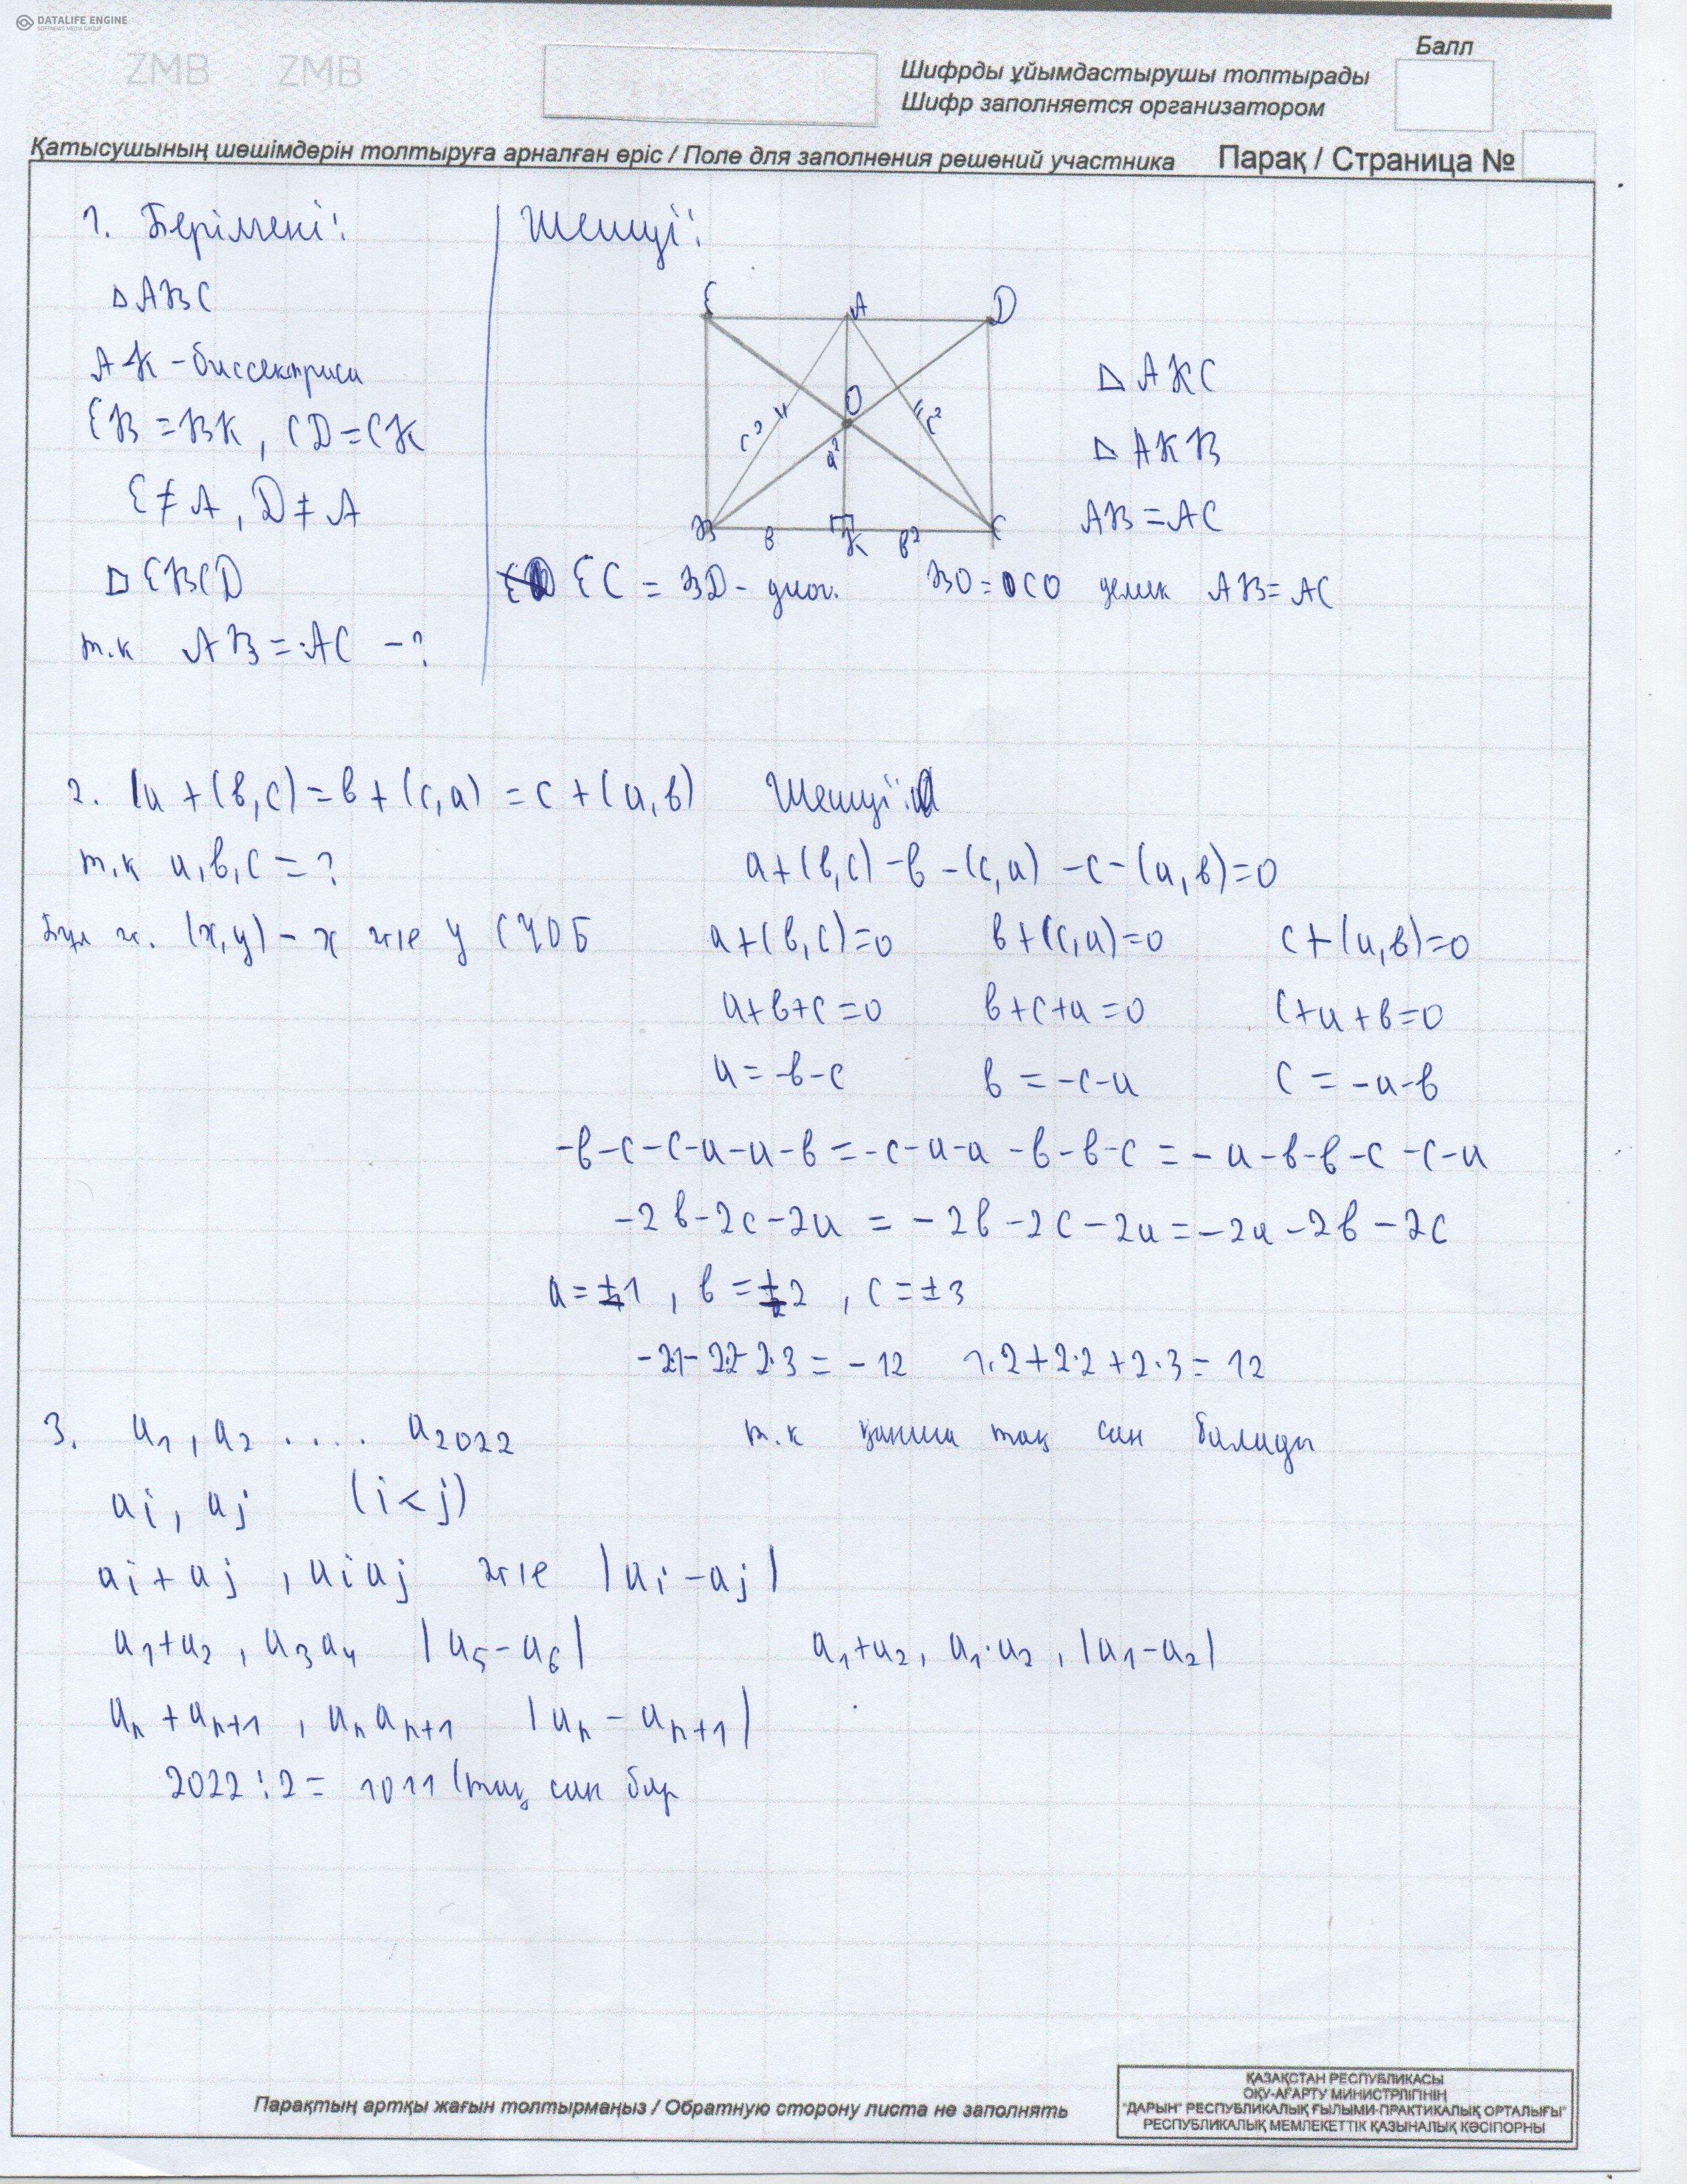 DATALIFE ENGINE
SOFTNEWS MEDIA GROUP
ZMB ZMB
Балл
Шифрды ұйымдастырушы толтырады
Шифр заполняется организатором
Қатысушының шешімдерін толтыруға арналған өріс / Поле для заполнения решений участника Парақ / Страница №
1. Берілгені:
Шешуі:
△ABC
AK - биссектриса
EB = BK, CD = CK
E ≠ A, D ≠ A
△ EBCD
т.к AB = AC - ?
E A D
O
c² c²
a²
B в K в² C
△ AKC
△ AKB
AB = AC
EC = BD - диог. BO = CO демек AB = AC
2. a + (в,c) = в + (c,a) = c + (a,в) Шешуі:
т.к a,в,c = ?
a + (в,c) - в - (c,a) - c - (a,в) = 0
Бұл ж. (x,y) - x және y
a + (в,c) = 0 в + (c,a) = 0 c + (a,в) = 0
a + в + c = 0 в + c + a = 0 c + a + в = 0
a = -в - c в = -c - a c = -a - в
-в - c - c - a - a - в = -c - a - a - в - в - c = -a - в - в - c - c - a
-2в - 2c - 2a = -2в - 2c - 2a = -2a - 2в - 2c
a = ±1, в = ±2, c = ±3
-2·1 - 2·2 - 2·3 = -12 1·2 + 2·2 + 2·3 = 12
3. a₁, a₂ .... a₂₀₂₂ т.к қанша тақ сан болады
ai, aj (i < j)
ai + aj, aiaj және |ai - aj|
a₁ + a₂, a₃a₄ |a₅ - a₆| a₁ + a₂, a₁·a₂, |a₁ - a₂|
aₙ + aₙ₊₁, aₙaₙ₊₁ |aₙ - aₙ₊₁|
2022 : 2 = 1011 (тақ сан бар
Парақтың артқы жағын толтырмаңыз / Обратную сторону листа не заполнять
ҚАЗАҚСТАН РЕСПУБЛИКАСЫ
ОҚУ-АҒАРТУ МИНИСТРЛІГІНІҢ
"ДАРЫН" РЕСПУБЛИКАЛЫҚ ҒЫЛЫМИ-ПРАКТИКАЛЫҚ ОРТАЛЫҒЫ"
РЕСПУБЛИКАЛЫҚ МЕМЛЕКЕТТІК ҚАЗЫНАЛЫҚ КӘСІПОРНЫ